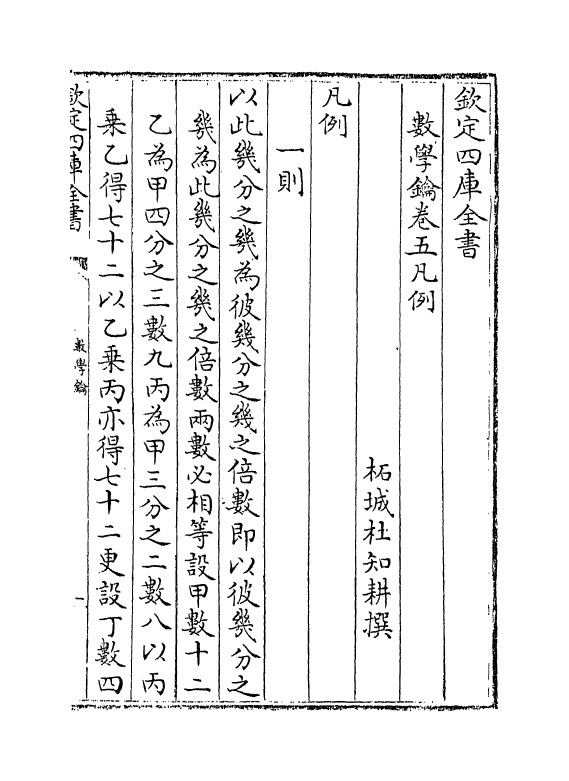 欽定四庫全書
數學鑰卷五凡例
柘城杜知耕撰
凡例
一則
以此幾分之幾為彼幾分之幾之倍數即以彼幾分之
幾為此幾分之幾之倍數兩數必相等設甲數十二
乙為甲四分之三數九丙為甲三分之二數八以丙
乗乙得七十二以乙乗丙亦得七十二更設丁數四
欽定四庫全書
數學鑰
一